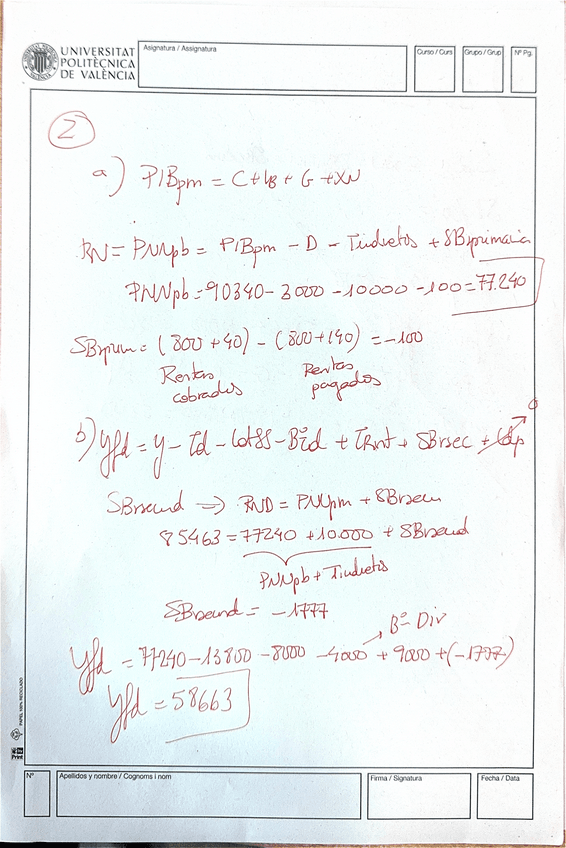 UNIVERSITAT
POLITÈCNICA
DE VALÈNCIA
Asignatura / Assignatura
Curso / Curs
Grupo / Grup
Nº Pg.
2
a) PIBpm = C + IB + G + XN
RN = PNNpb = PIBpm - D - Tindictos + SBrprimaria
PNNpb = 90340 - 3000 - 10000 - 100 = 77.240
SBrprim = (800 + 40) - (800 + 140) = -100
Rentas Rentas
cobrados pagados
b) Yfd = Y - Td - Cot SS - Bº id + TRint + SBrsec +
0
SBrsecund ⇒ RND = PNNpm + SBrsecun
85463 = 77240 + 10.000 + SBrsecund
PNNpb + Tindictos
SBrsecund = -1777
Bº Div
Yfd = 77240 - 13800 - 8000 - 4000 + 9000 + (-1777)
Yfd = 58663
PAPEL 100% RECICLADO
Print
Nº
Apellidos y nombre / Cognoms i nom
Firma / Signatura
Fecha / Data